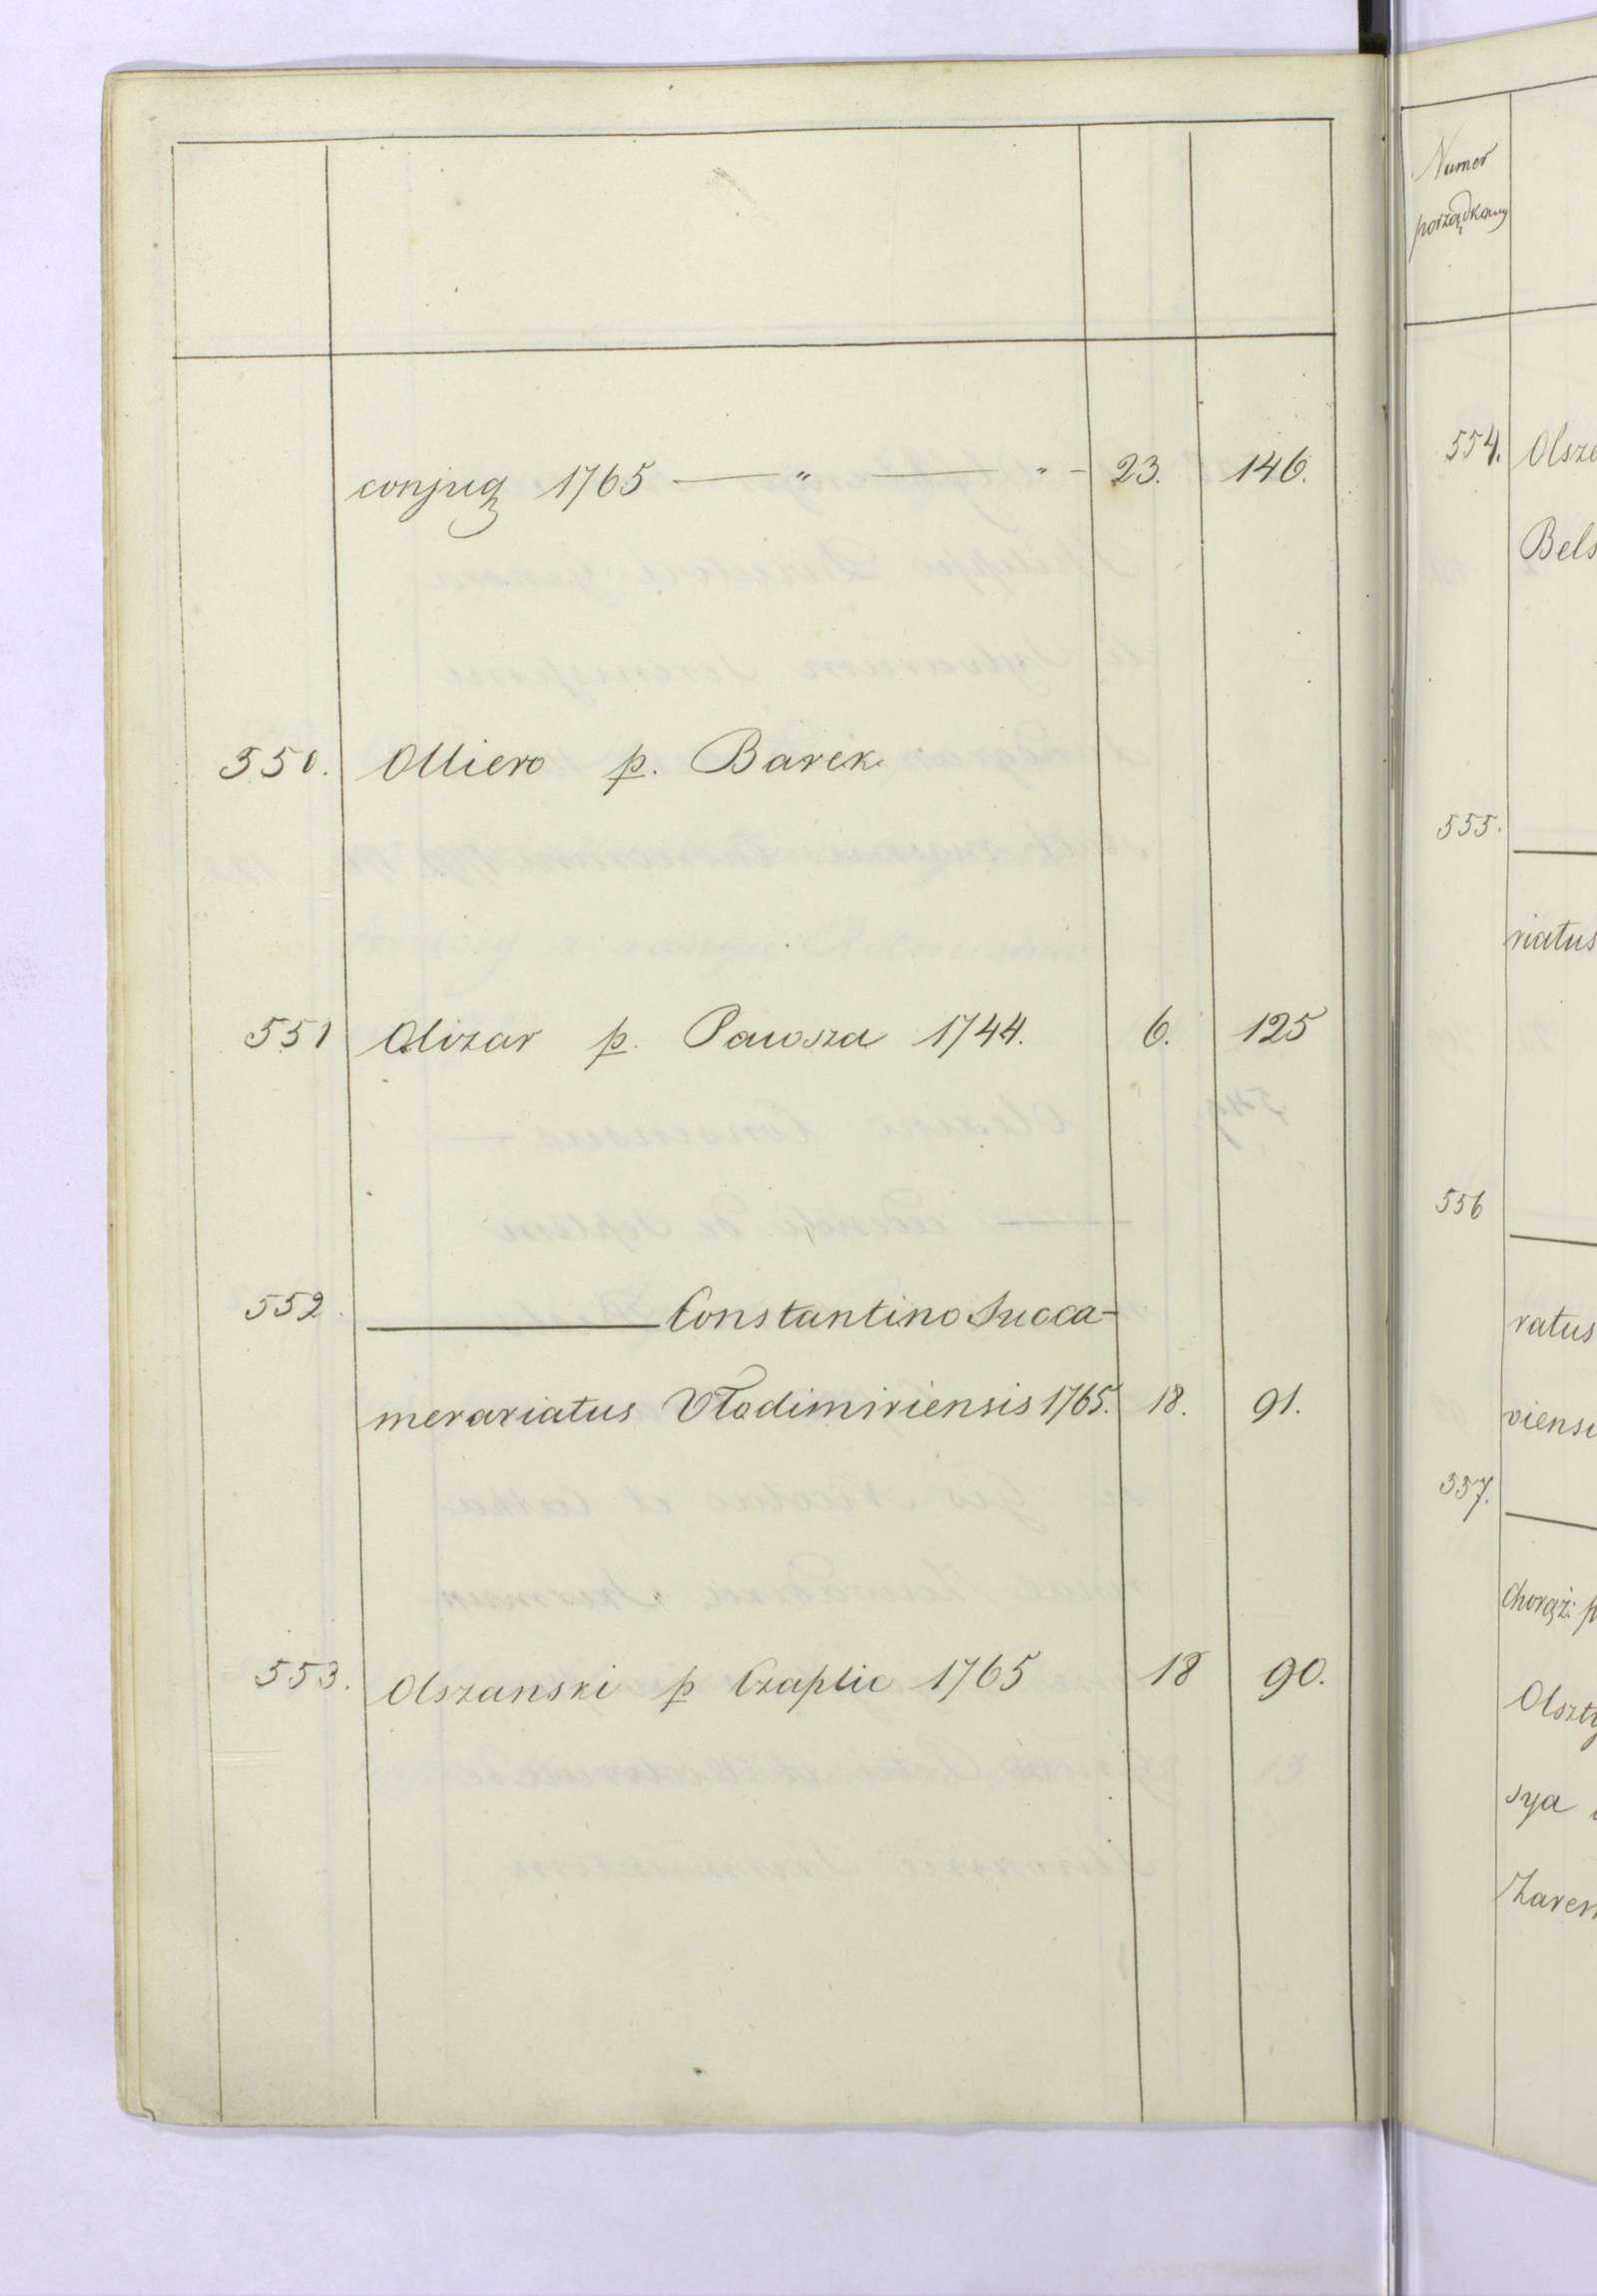 conjug 1765 — " — " - 23. 146.
550. Olliero p. Barek
551 Olizar p. Pawsza 1744. 6. 125
552. ——— Constantino Succa-
merariatus Vladimiriensis 1765. 18. 91.
553. Olszanski p Czaplic 1765 18 90.
Numer
porządkowy
554. Olsza
Bels
555.
riatus
556
ratus
viensi
557.
Chorąż: p
Olszty
sya
Zarem